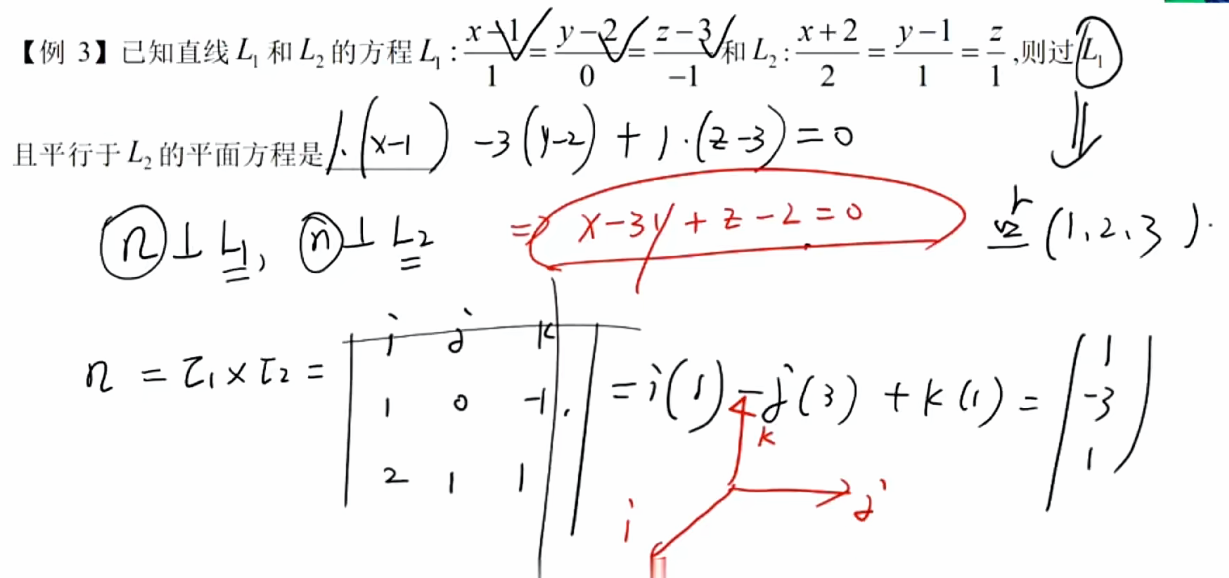 【例 3】已知直线 L₁ 和 L₂ 的方程 L₁ : (x−1)/1 = (y−2)/0 = (z−3)/−1 和 L₂ : (x+2)/2 = (y−1)/1 = z/1 ,则过 L₁
且平行于 L₂ 的平面方程是 1·(x−1) −3(y−2) + 1·(z−3) = 0
n ⊥ L₁, n ⊥ L₂ ⇒ x−3y+z−2=0 (1,2,3).
i j k
n = τ₁ × τ₂ = 1 0 −1 = i(1) −j(3) + k(1) = (1 −3 1)
2 1 1
k
j
i